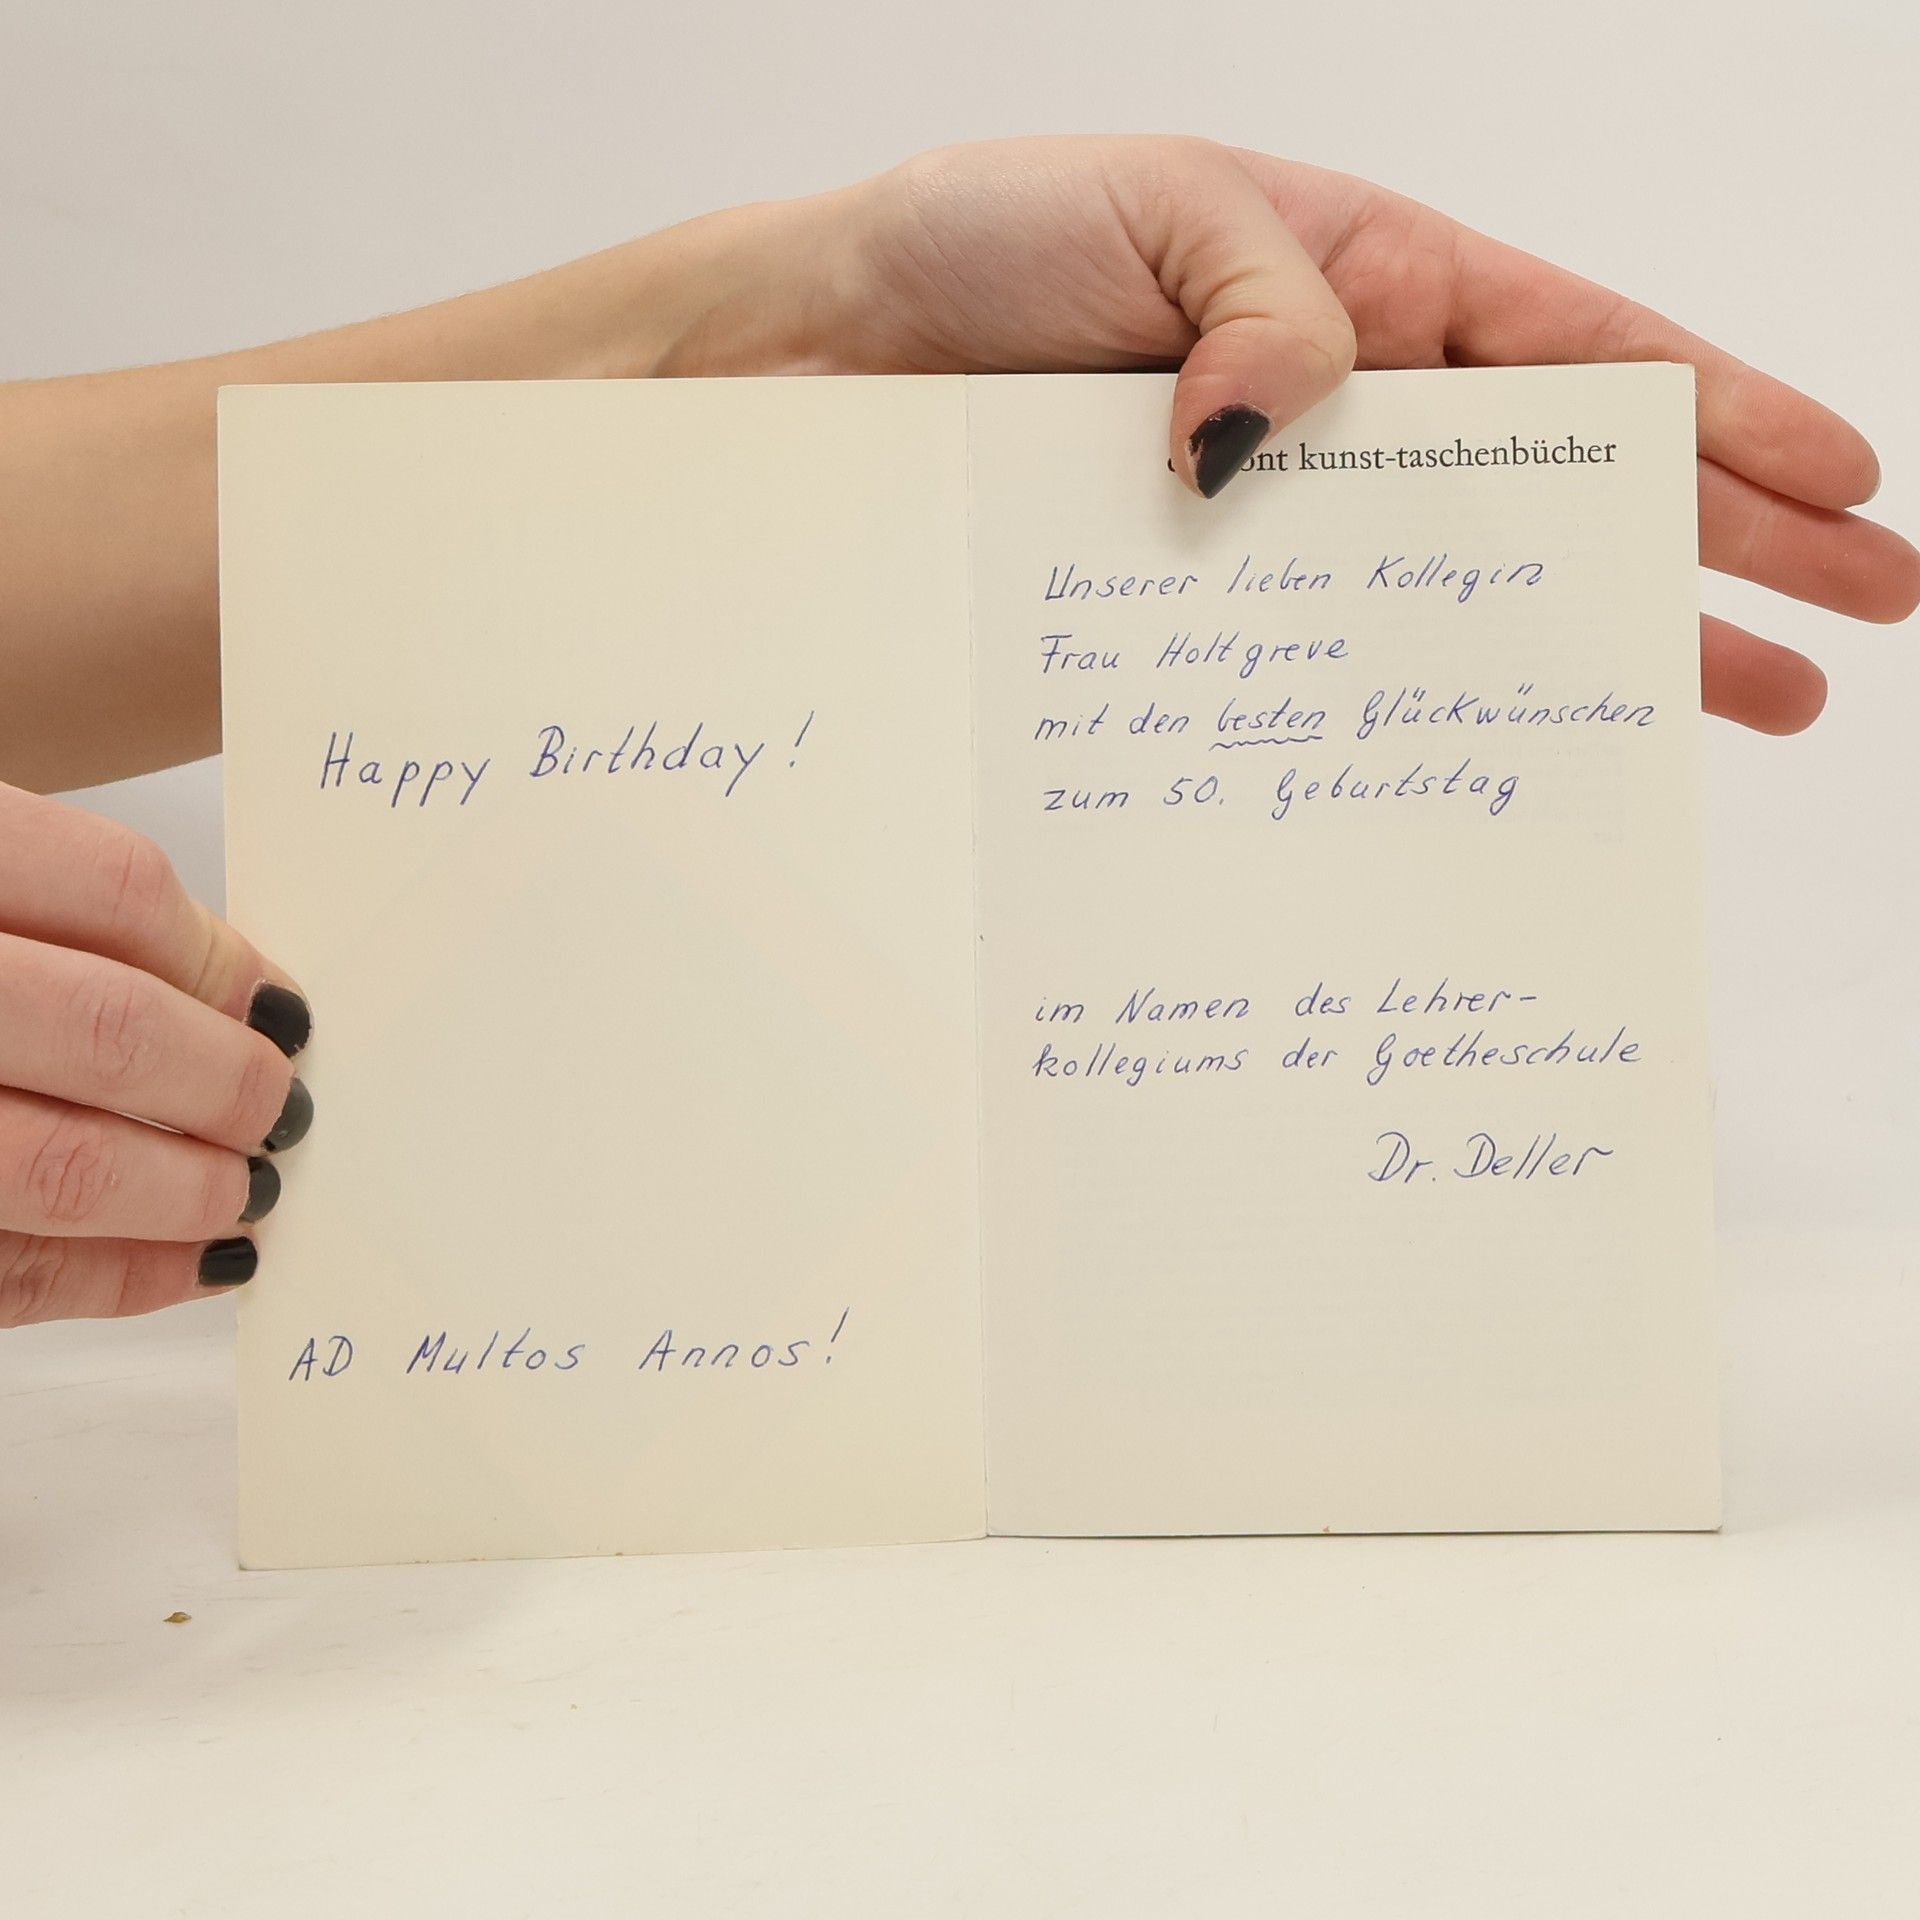 Happy Birthday!
AD Multos Annos!
kunst-taschenbücher
Unserer lieben Kollegin
Frau Holtgreve
mit den besten Glückwünschen
zum 50. Geburtstag
im Namen des Lehrer-
kollegiums der Goetheschule
Dr. Deller